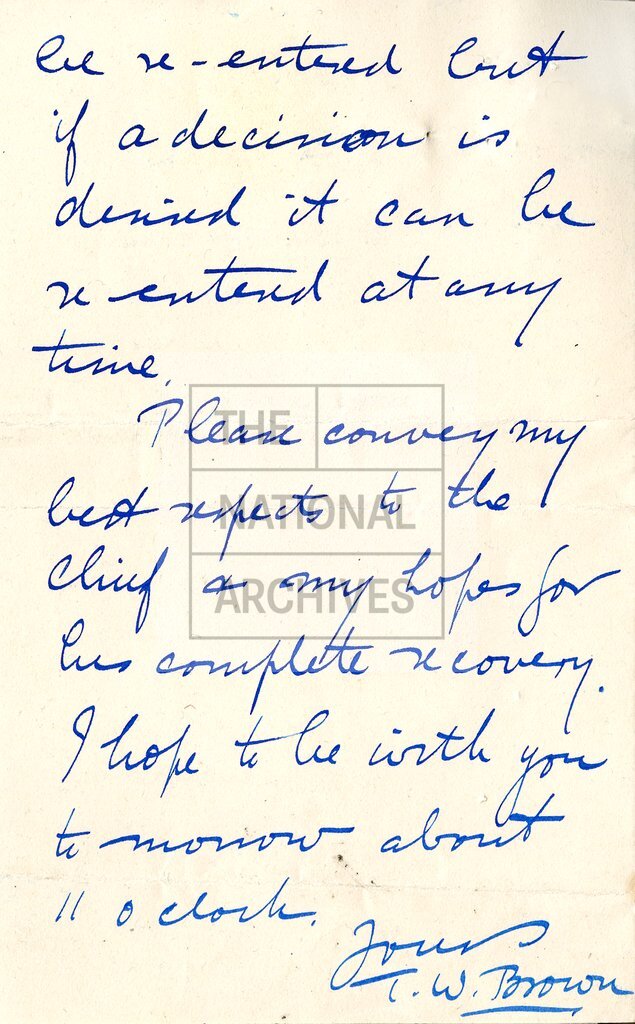 be re-entered but
if a decision is
desired it can be
re-entered at any
time.
Please convey my
best respects to the
Chief & my hopes for
his complete recovery.
I hope to be with you
to morrow about
11 o clock.
Yours
T. W. Brown
THE
NATIONAL
ARCHIVES